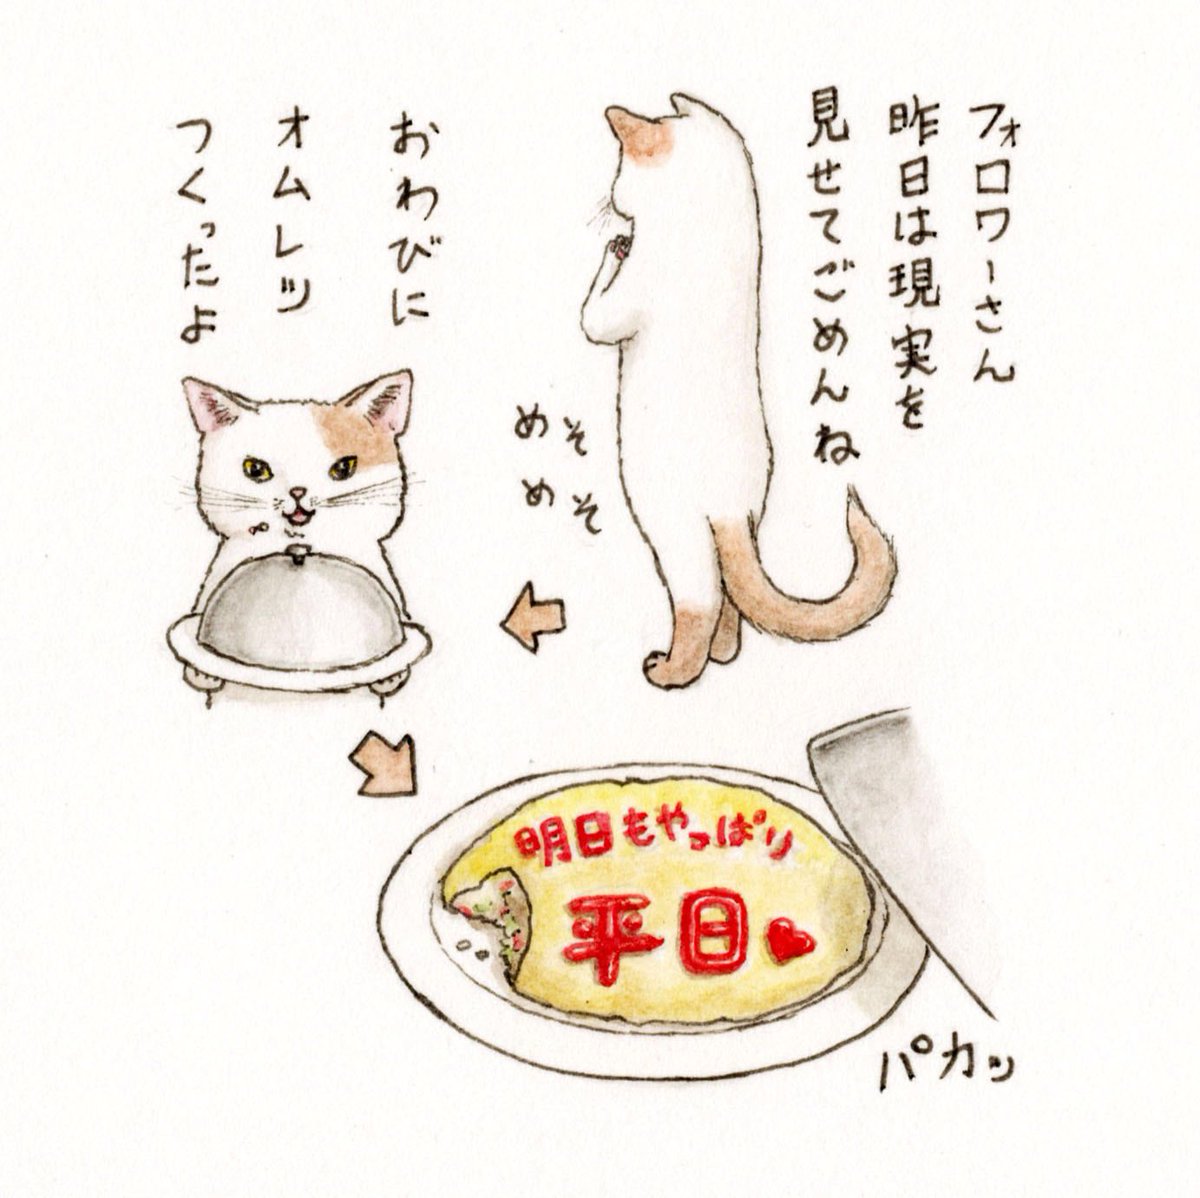 フォロワーさん
昨日は現実を
見せてごめんね
めそ
めそ
おわびに
オムレツ
つくったよ
明日もやっぱり
平日
パカッ